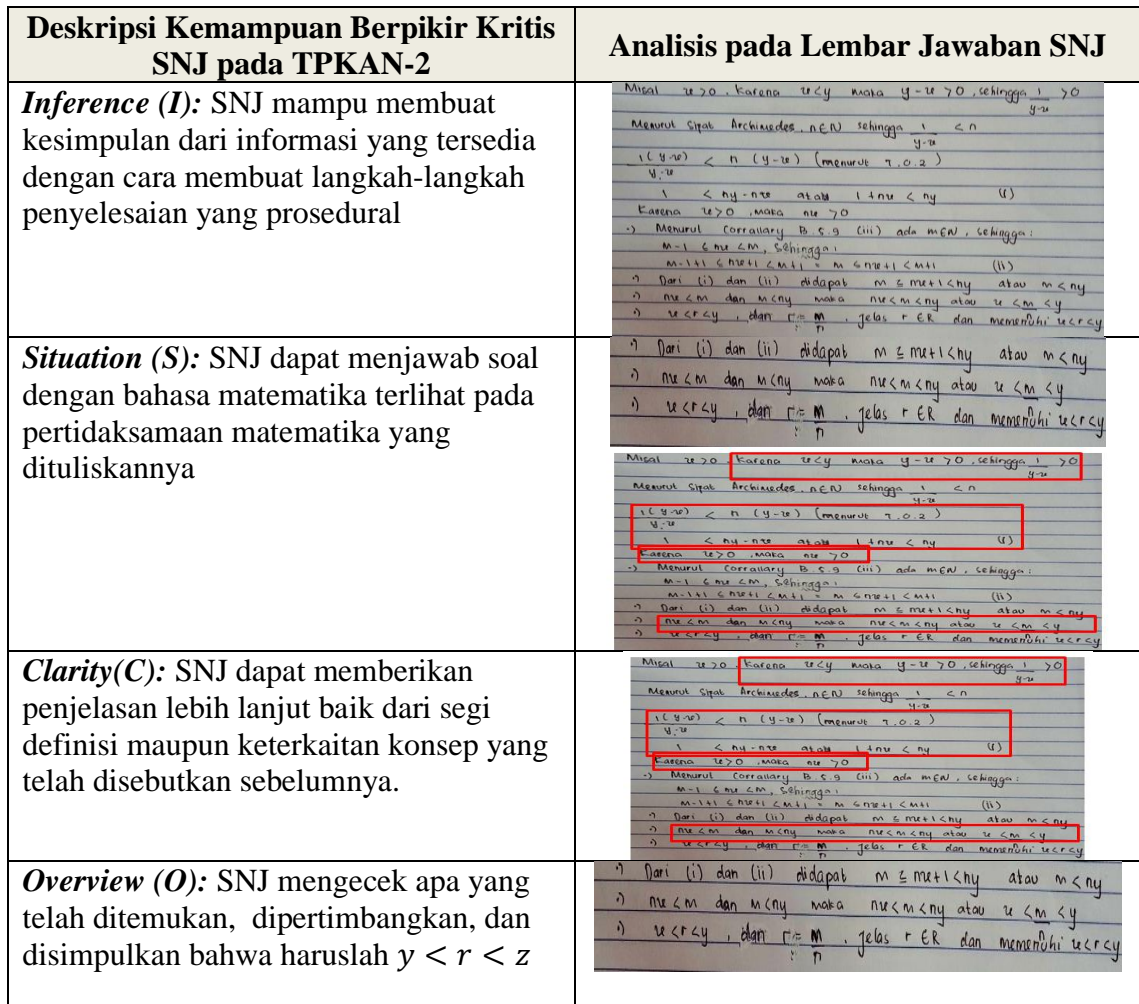 Deskripsi Kemampuan Berpikir Kritis
SNJ pada TPKAN-2
Analisis pada Lembar Jawaban SNJ
Inference (I): SNJ mampu membuat
kesimpulan dari informasi yang tersedia
dengan cara membuat langkah-langkah
penyelesaian yang prosedural
Misal x>0. Karena x<y maka y-x>0, sehingga 1/(y-x) >0
Menurut Sipat Archimedes, n∈N sehingga 1/(y-x) < n
1(y-x)/(y-x) < n (y-x) (menurut 7.0.2)
1 < ny-nx atau 1+nx < ny (i)
Karena x>0, maka nx>0
·) Menurut Corrallary B.5.9 (iii) ada m∈N, sehingga:
m-1 ≤ nx < m, sehingga:
m-1+1 ≤ nx+1 < m+1 = m ≤ nx+1 < m+1 (ii)
·) Dari (i) dan (ii) didapat m ≤ nx+1 < ny atau m < ny
·) nx < m dan m < ny maka nx < m < ny atau x < m/n < y
·) x<r<y, dan r = m/n, jelas r ∈ R dan memenuhi x<r<y
Situation (S): SNJ dapat menjawab soal
dengan bahasa matematika terlihat pada
pertidaksamaan matematika yang
dituliskannya
·) Dari (i) dan (ii) didapat m ≤ nx+1 < ny atau m < ny
·) nx < m dan m < ny maka nx < m < ny atau x < m/n < y
·) x<r<y, dan r = m/n, jelas r ∈ R dan memenuhi x<r<y
Misal x>0. Karena x<y maka y-x>0, sehingga 1/(y-x) >0
Menurut Sipat Archimedes, n∈N sehingga 1/(y-x) < n
1(y-x)/(y-x) < n (y-x) (menurut 7.0.2)
1 < ny-nx atau 1+nx < ny (i)
Karena x>0, maka nx>0
·) Menurut Corrallary B.5.9 (iii) ada m∈N, sehingga:
m-1 ≤ nx < m, sehingga:
m-1+1 ≤ nx+1 < m+1 = m ≤ nx+1 < m+1 (ii)
·) Dari (i) dan (ii) didapat m ≤ nx+1 < ny atau m < ny
·) nx < m dan m < ny maka nx < m < ny atau x < m/n < y
·) x<r<y, dan r = m/n, jelas r ∈ R dan memenuhi x<r<y
Clarity(C): SNJ dapat memberikan
penjelasan lebih lanjut baik dari segi
definisi maupun keterkaitan konsep yang
telah disebutkan sebelumnya.
Misal x>0. Karena x<y maka y-x>0, sehingga 1/(y-x) >0
Menurut Sipat Archimedes, n∈N sehingga 1/(y-x) < n
1(y-x)/(y-x) < n (y-x) (menurut 7.0.2)
1 < ny-nx atau 1+nx < ny (i)
Karena x>0, maka nx>0
·) Menurut Corrallary B.5.9 (iii) ada m∈N, sehingga:
m-1 ≤ nx < m, sehingga:
m-1+1 ≤ nx+1 < m+1 = m ≤ nx+1 < m+1 (ii)
·) Dari (i) dan (ii) didapat m ≤ nx+1 < ny atau m < ny
·) nx < m dan m < ny maka nx < m < ny atau x < m/n < y
·) x<r<y, dan r = m/n, jelas r ∈ R dan memenuhi x<r<y
Overview (O): SNJ mengecek apa yang
telah ditemukan, dipertimbangkan, dan
disimpulkan bahwa haruslah y < r < z
·) Dari (i) dan (ii) didapat m ≤ nx+1 < ny atau m < ny
·) nx < m dan m < ny maka nx < m < ny atau x < m/n < y
·) x<r<y, dan r = m/n, jelas r ∈ R dan memenuhi x<r<y